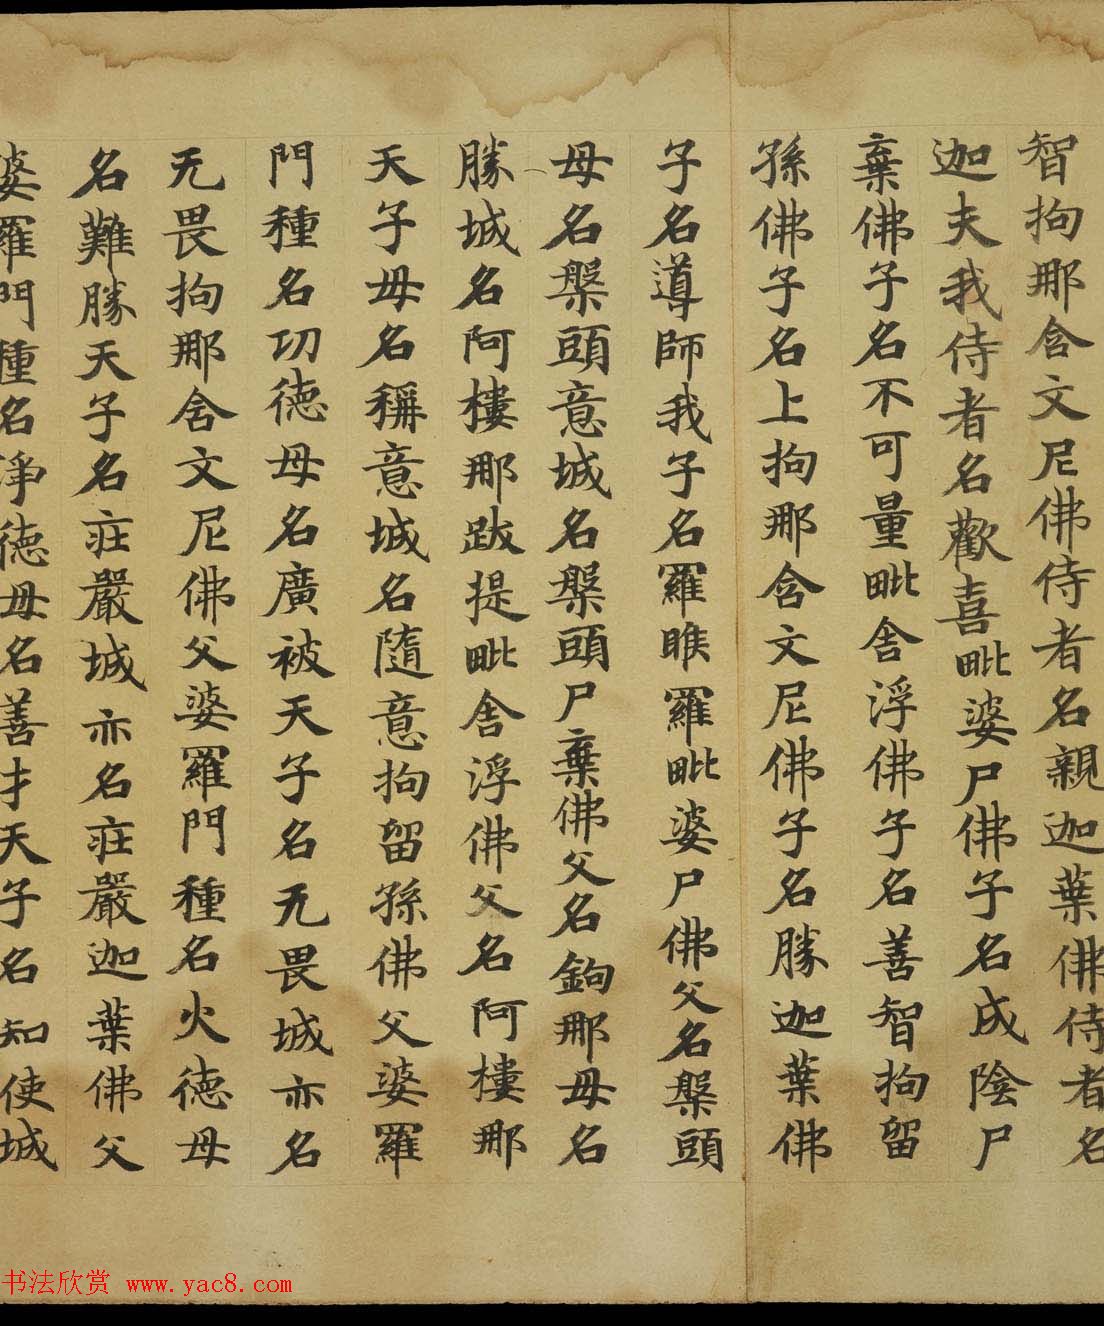 智拘那含文尼佛侍者名親迦葉佛侍者名
迦夫我侍者名歡喜毗婆尸佛子名成陰尸
棄佛子名不可量毗舍浮佛子名善智拘留
孫佛子名上拘那含文尼佛子名勝迦葉佛
子名導師我子名羅睺羅毗婆尸佛父名槃頭
母名槃頭意城名槃頭尸棄佛父名鉤那母名
勝城名阿樓那跋提毗舍浮佛父名阿樓那
天子母名稱意城名隨意拘留孫佛父婆羅
門種名功德母名廣被天子名无畏城亦名
无畏拘那含文尼佛父婆羅門種名火德母
名難勝天子名莊嚴城亦名莊嚴迦葉佛父
婆羅門種名淨德母名善才天子名知使城
书法欣赏 www.yac8.com